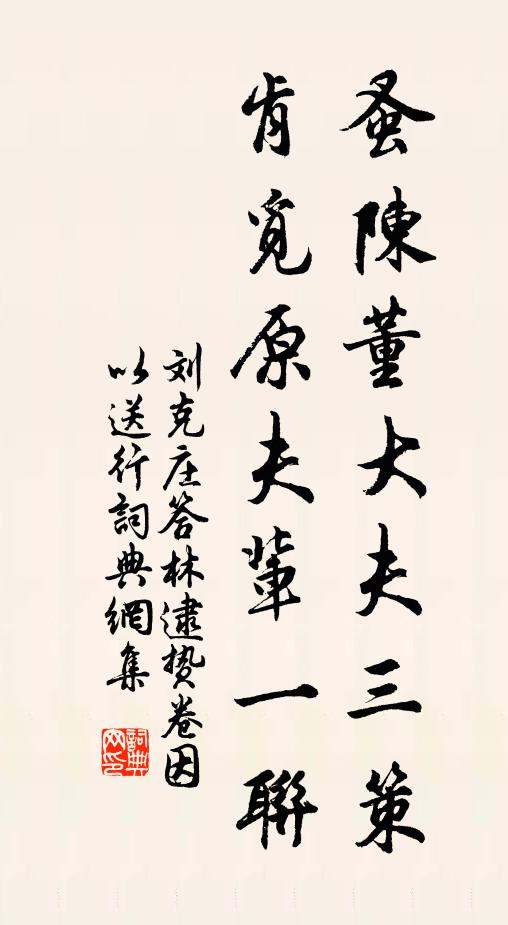 蚤陳董大夫三策
肯覓原夫輩一聯
刘克庄答林逮贽卷因
以送行詞典網集
詞典
网印